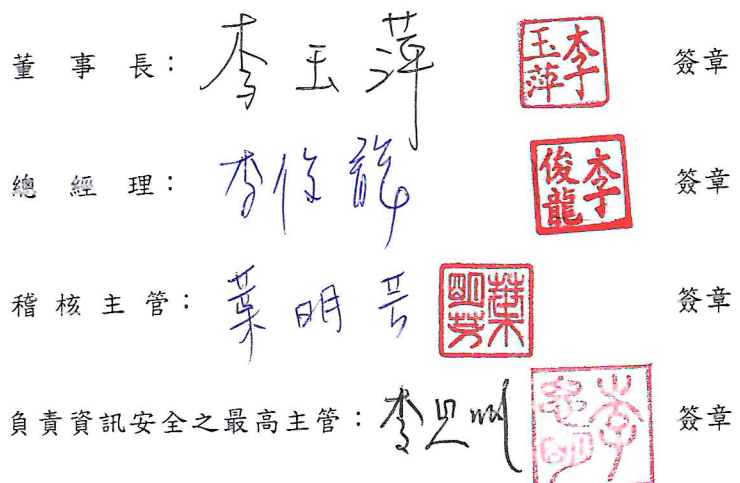 董 事 長： 李玉萍 李玉萍 簽章
總 經 理： 李俊龍 李俊龍 簽章
稽 核 主 管： 葉明芳 葉明芳 簽章
負責資訊安全之最高主管： 李 李 簽章